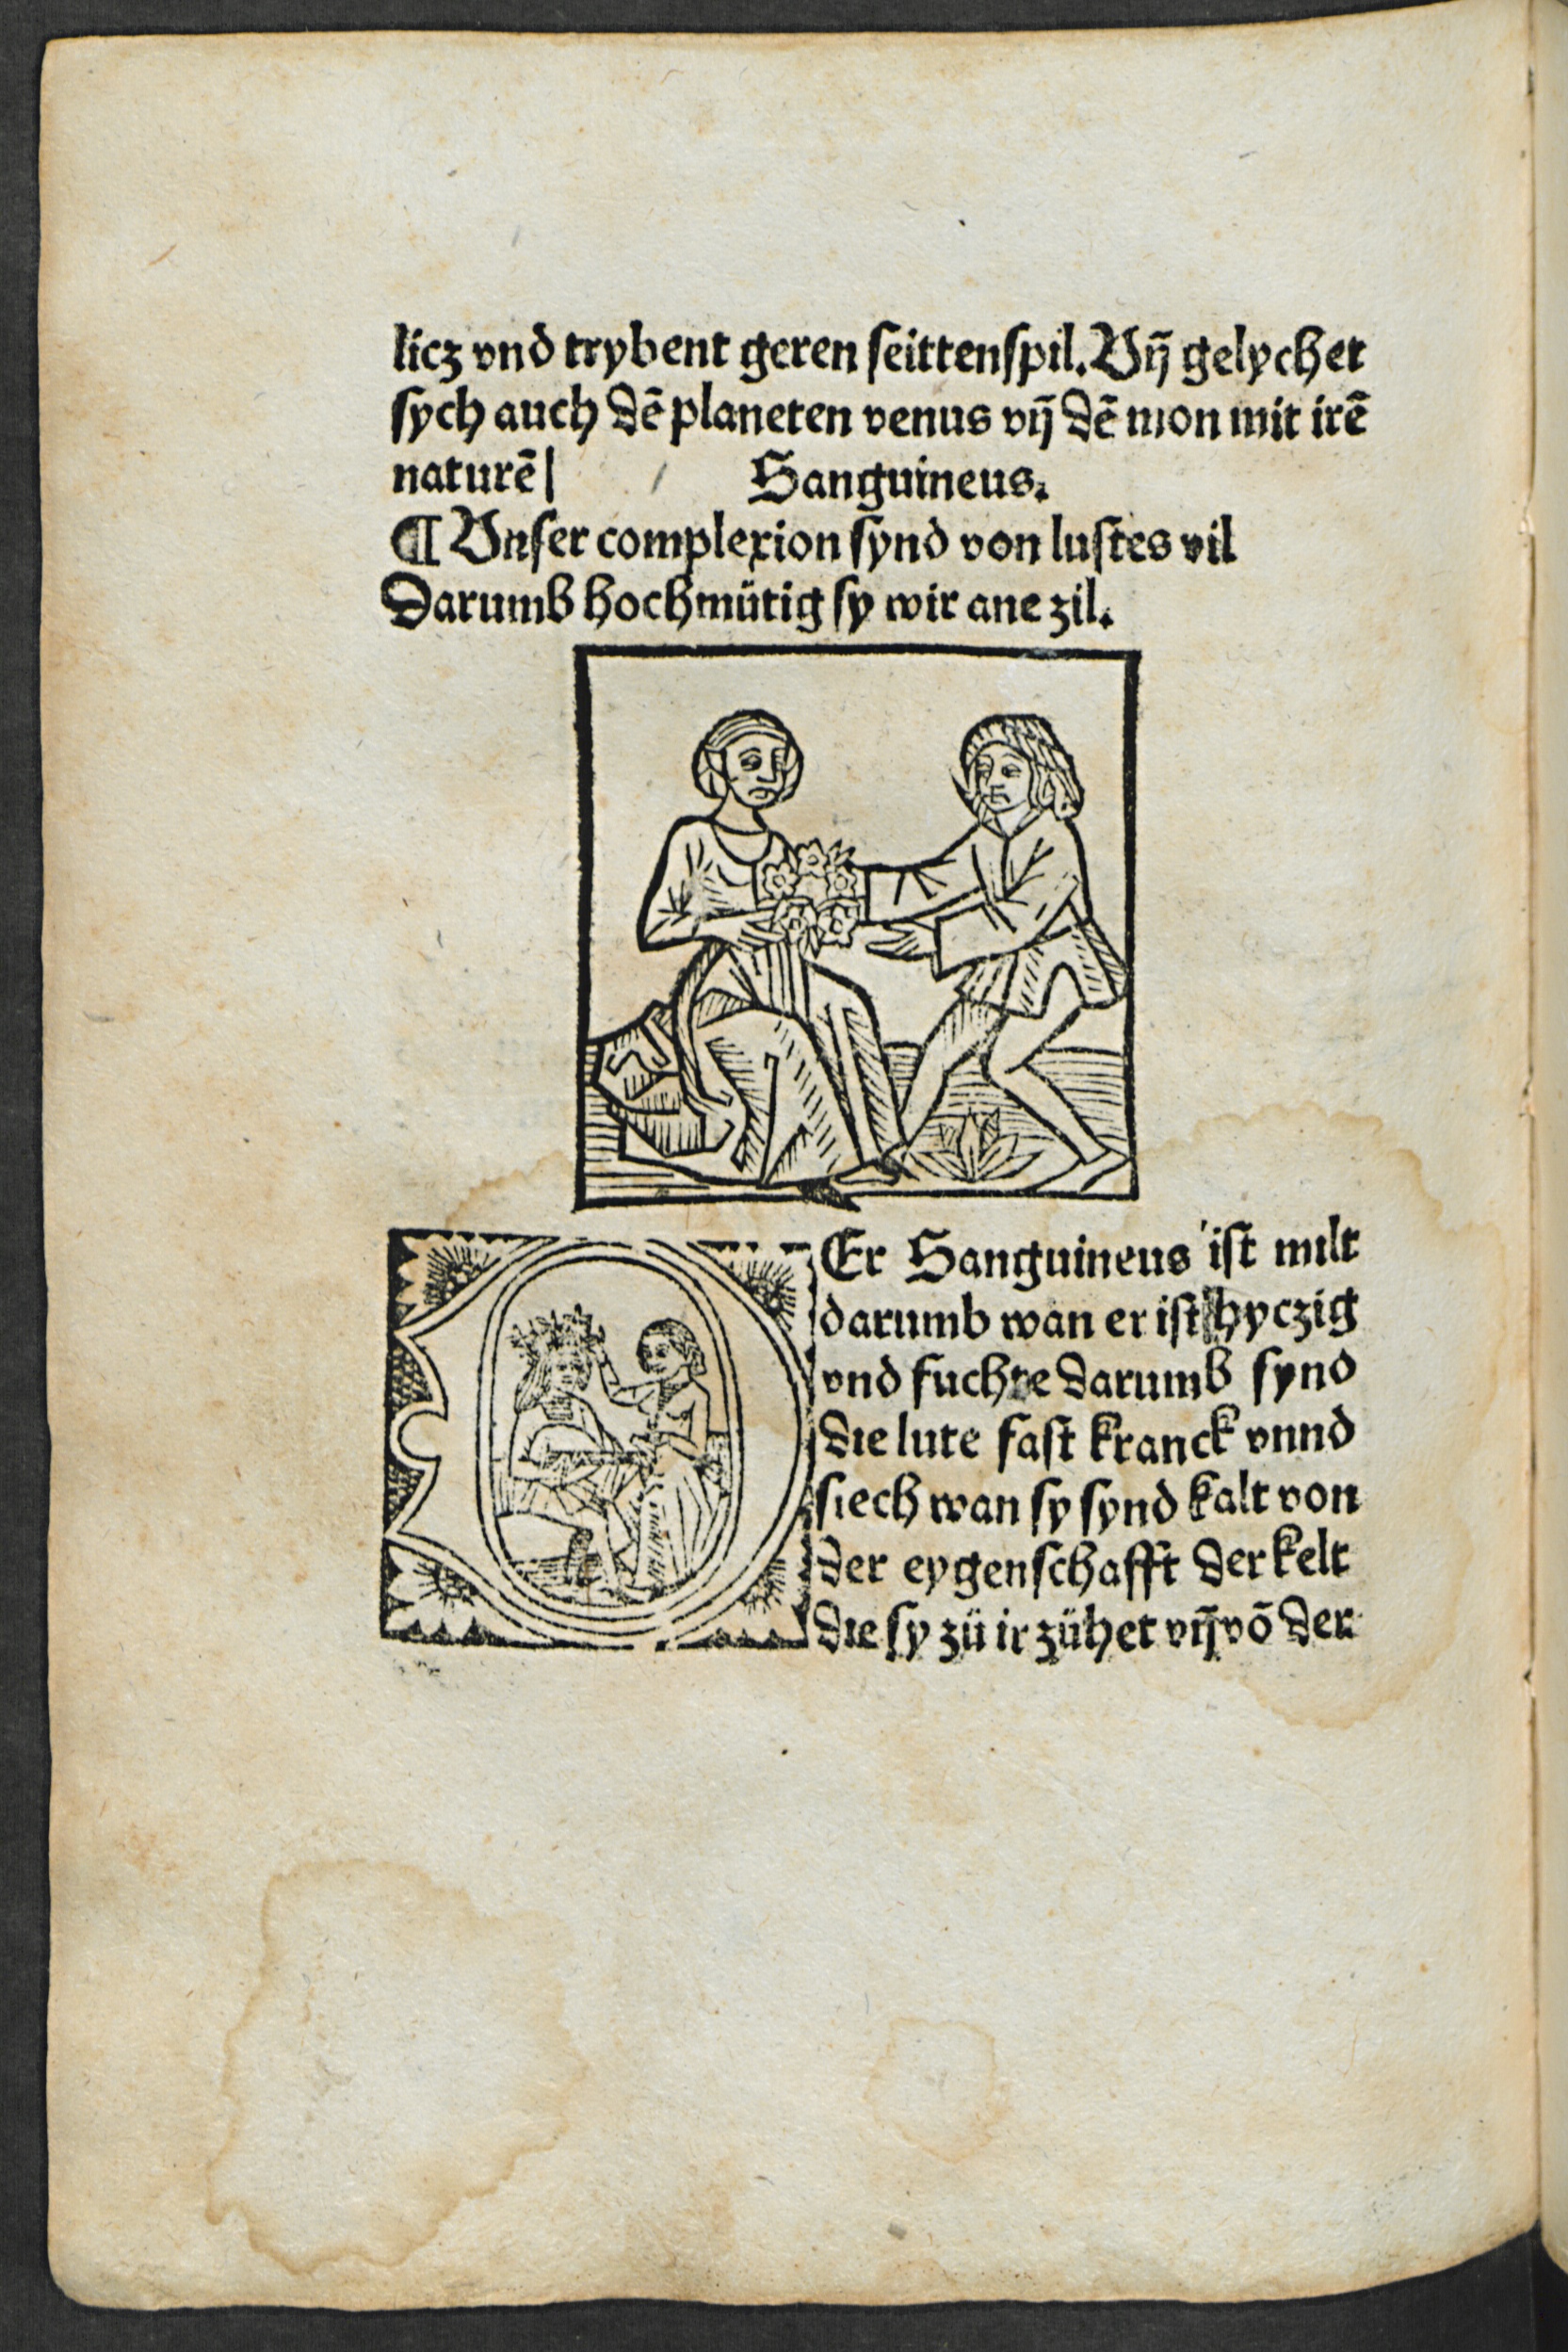 licz vnd trybent geren ſeittenſpil. Vñ gelychet
ſych auch dē planeten venus vñ dē mon mit irē
naturē|
Sanguineus.
¶ Vnſer complexion ſynd von luſtes vil
Darumb hochmütig ſy wir ane zil.
DEr Sanguineus iſt milt
darumb wan er iſt hyczig
vnd fuchte darumb ſynd
die lute faſt kranck vnnd
ſiech wan ſy ſynd kalt von
der eygenſchafft der kelt
die ſy zü ir zühet vñ vō der